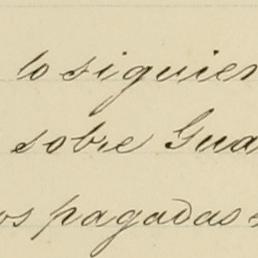 lo siguien
sobre Gua
os pagadas